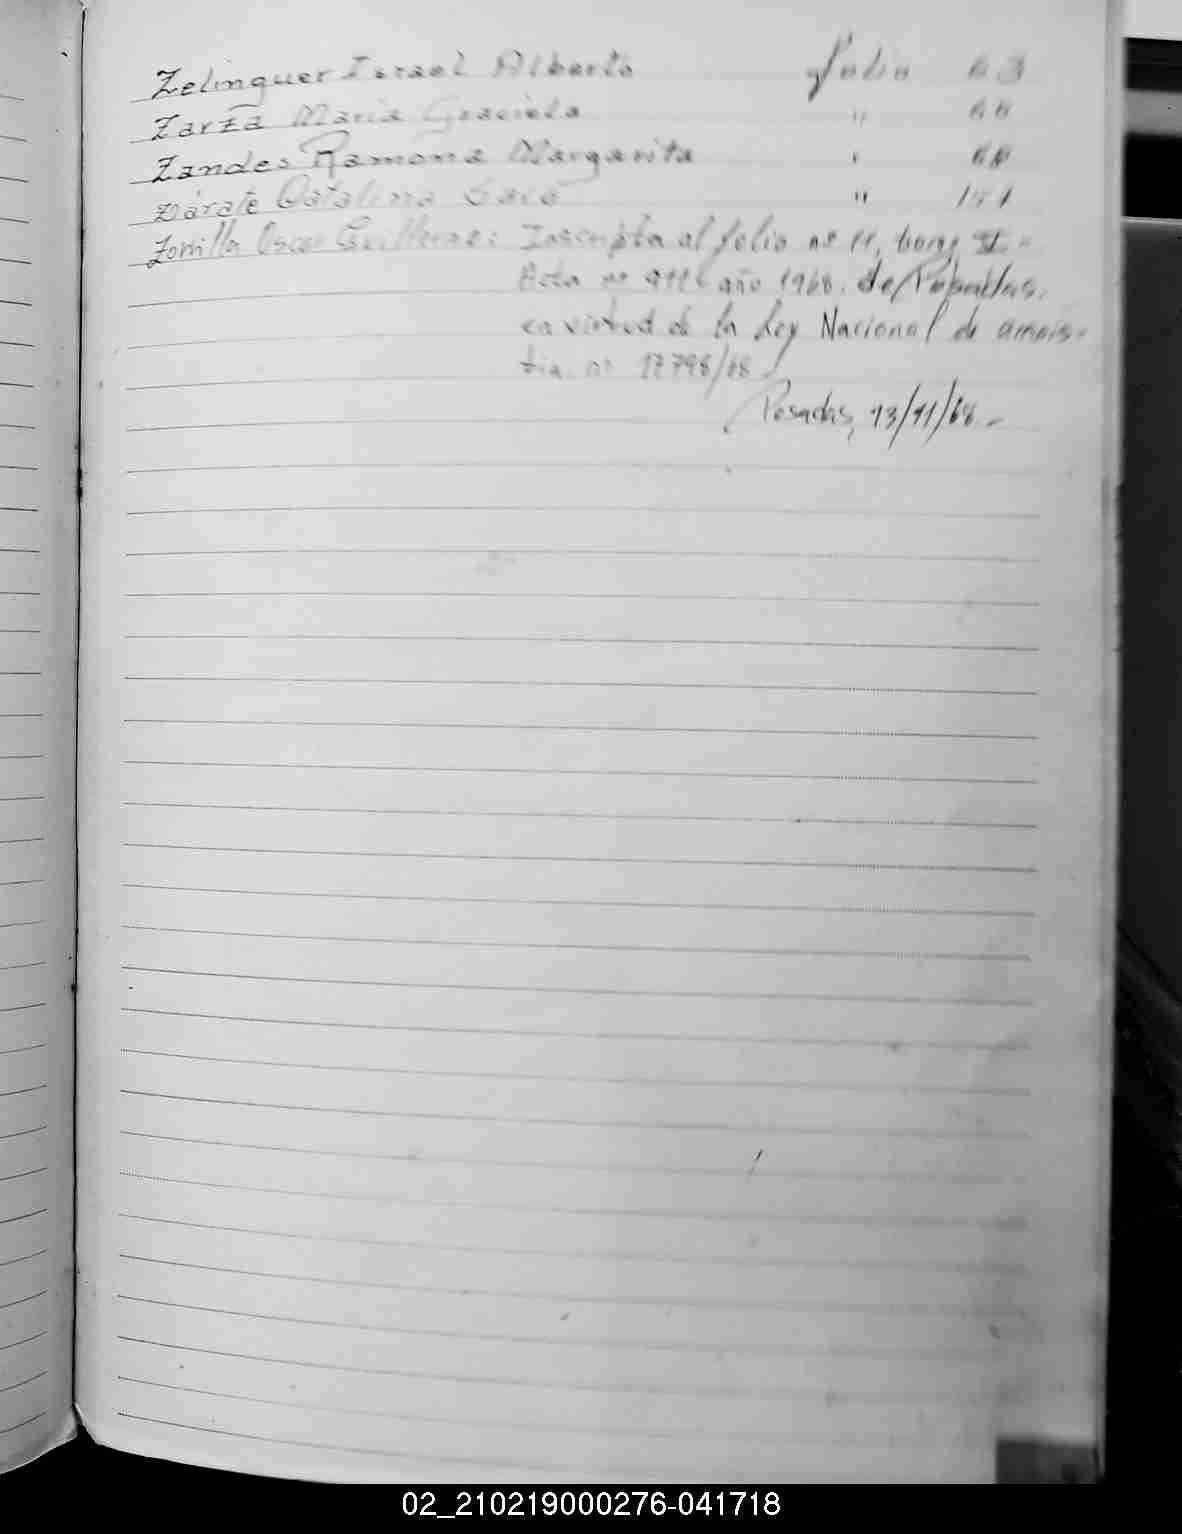 Zelinguer Israel Alberto folio 63
Zarza Maria Graciela "
Zandes Ramona Margarita "
Zárate Catalina Sara " 151
Zorrilla Oscar Guillermo: Inscripta al folio nº 11, tomo II.-
Acta nº año 1968. de Posadas.
en virtud de la Ley Nacional de amnis-
tia. nº 17796/68
Posadas, 13/11/68.-
02_210219000276-041718